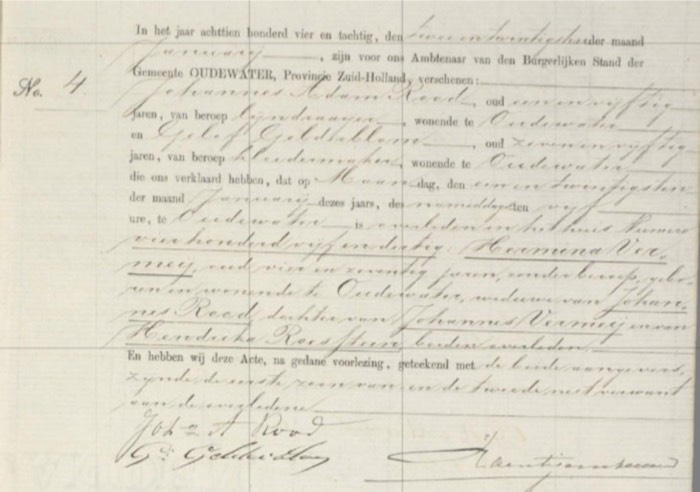 In het jaar achttien honderd vier en tachtig, den twee en twintigsten der maand
Januarij, zijn voor ons Ambtenaar van den Burgerlijken Stand der
No. 4. Gemeente OUDEWATER, Provincie Zuid-Holland, verschenen:
Johannes Adam Rood, oud een en vijftig
jaren, van beroep lijndraaijer, wonende te Oudewater
en Gelof Geldeblom, oud zeven en vijftig
jaren, van beroep kleedermaker, wonende te Oudewater
die ons verklaard hebben, dat op Maandag, den een en twintigsten
der maand Januarij dezes jaars, des namiddags ten vijf
ure, te Oudewater is overleden in het huis Numero
vierhonderd vijf en dertig: Hermina Ver-
meij, oud vier en zeventig jaren, zonder beroep, gebo-
ren en wonende te Oudewater, weduwe van Johan-
nes Rood, dochter van Johannes Vermeij en van
Hendrika Roossteen, beiden overleden.
En hebben wij deze Acte, na gedane voorlezing, geteekend met de beide aangevers,
zijnde de eerste zoon van en de tweede niet verwant
aan de overledene
Joh A Rood